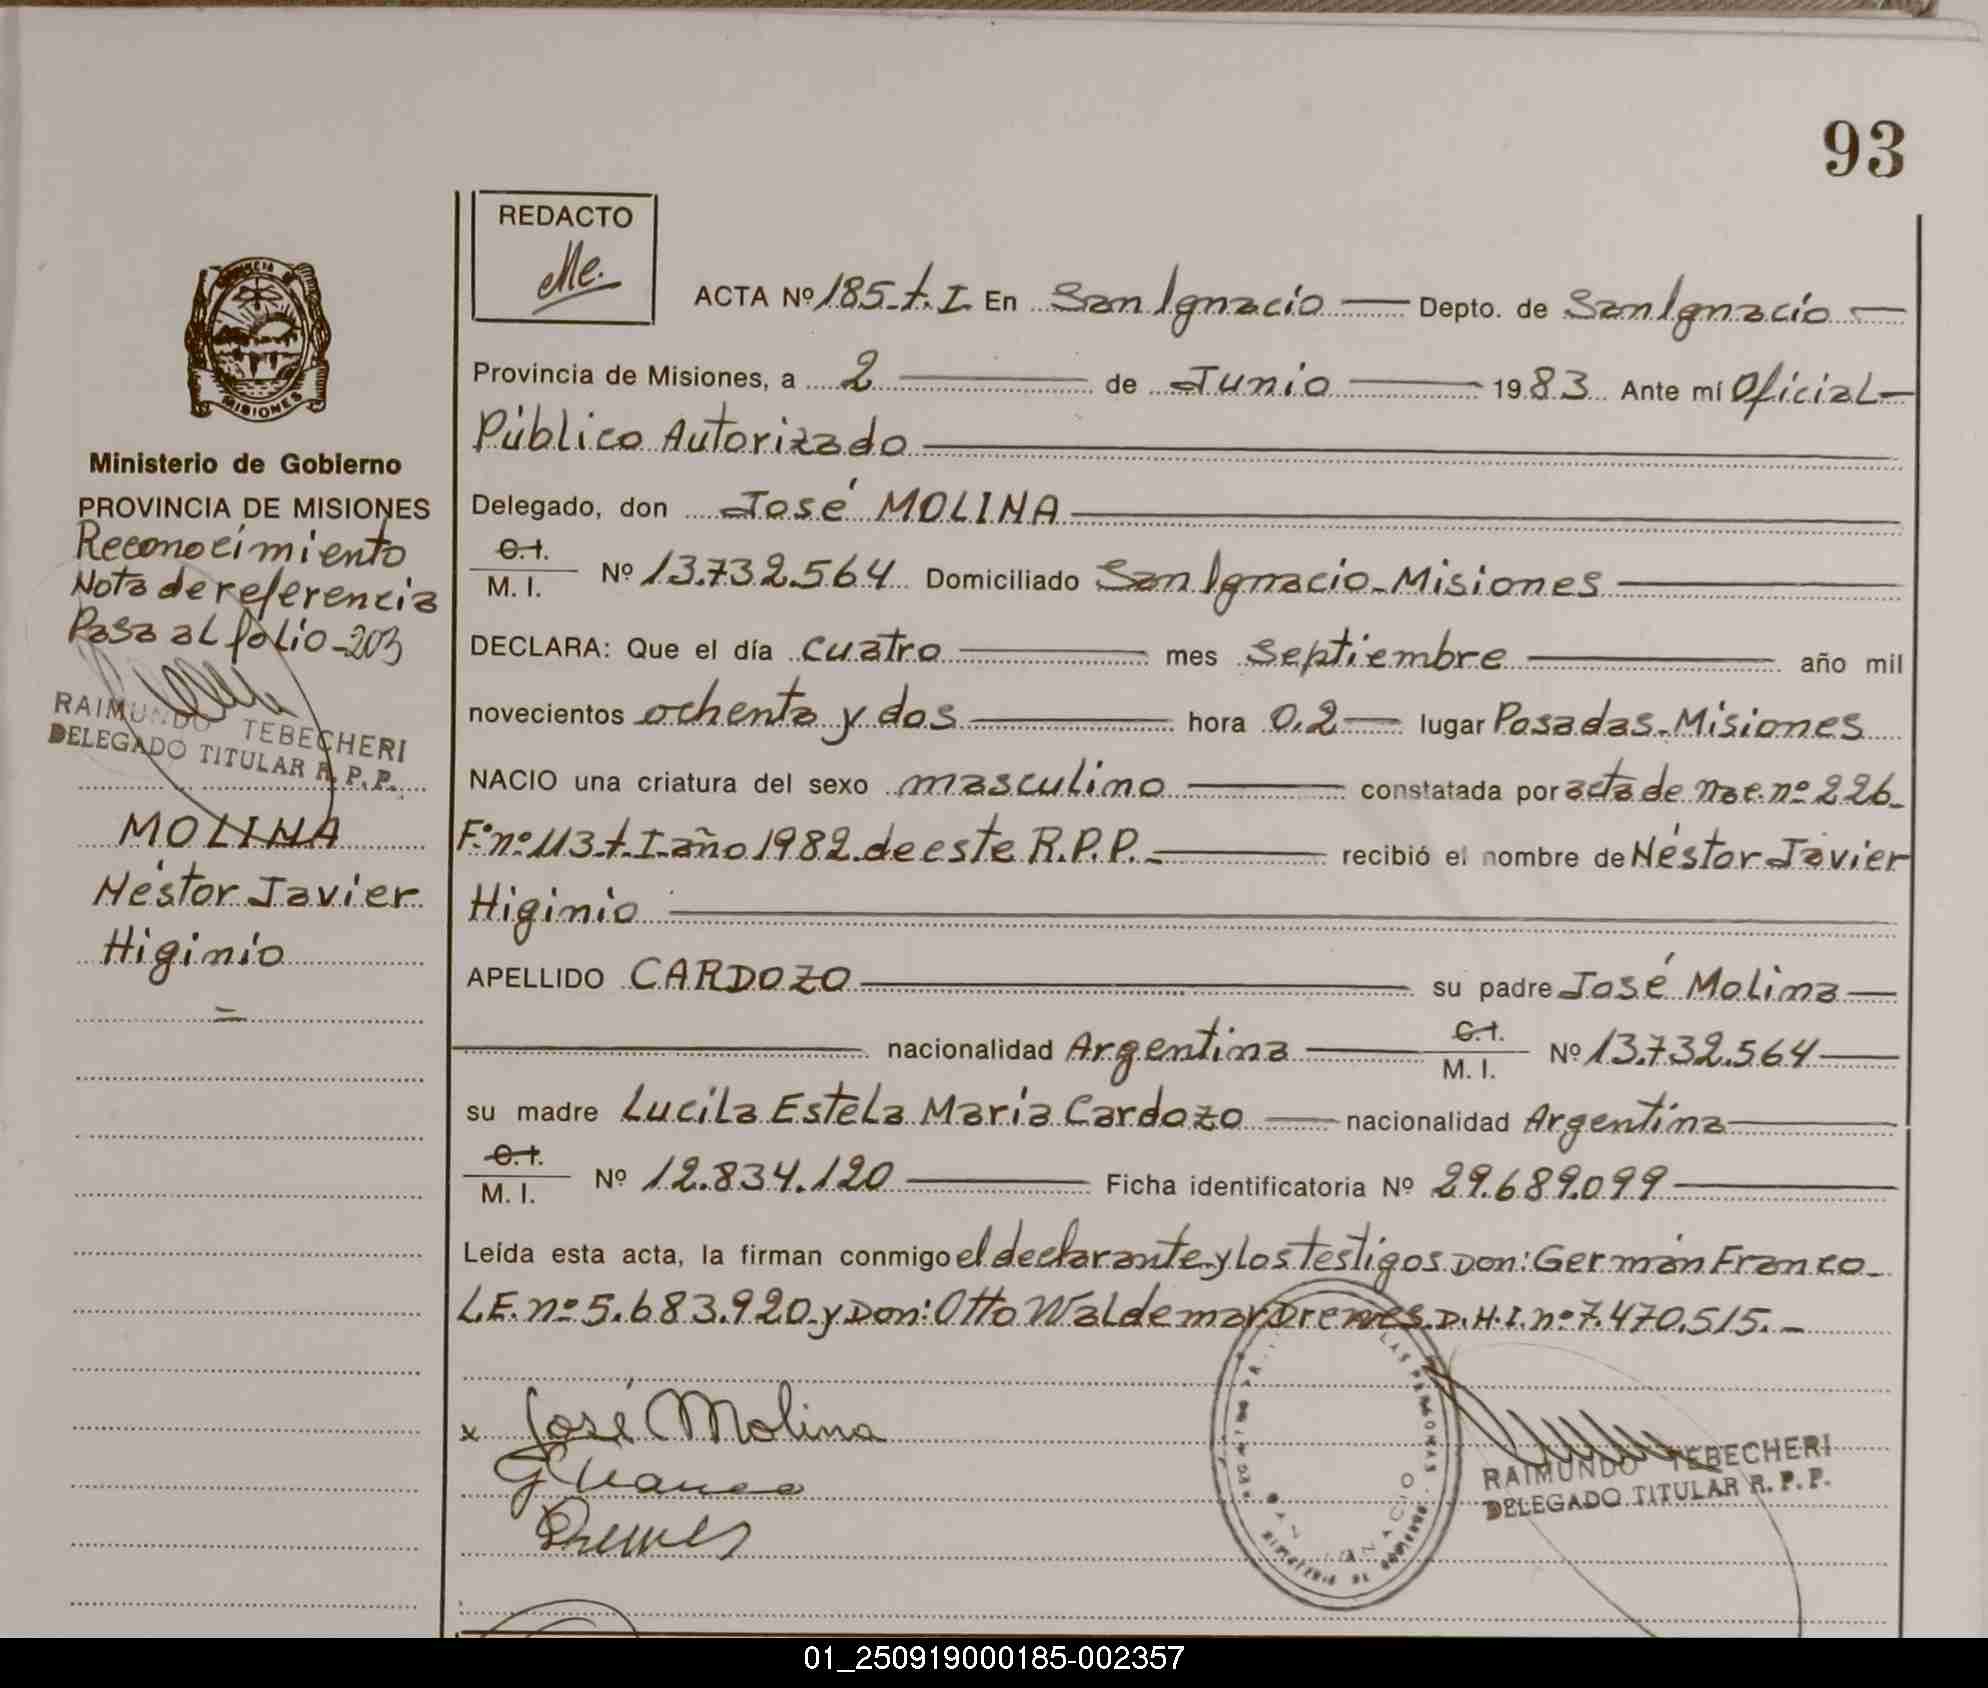 93
REDACTO
Me.
ACTA Nº 185-t. I En San Ignacio Depto. de San Ignacio
Provincia de Misiones, a 2 de Junio 1983 Ante mí Oficial
Público Autorizado
Delegado, don José MOLINA
C.I.
M. I. Nº 13.732.564 Domiciliado San Ignacio-Misiones
DECLARA: Que el día cuatro mes Septiembre año mil
novecientos ochenta y dos hora 0,2 lugar Posadas-Misiones
NACIO una criatura del sexo masculino constatada por acta de nac. nº 226-
Fº nº 113-t. I-año 1982 de este R.P.P.- recibió el nombre de Néstor Javier
Higinio
APELLIDO CARDOZO su padre José Molina
nacionalidad Argentina C.I. M. I. Nº 13.732.564
su madre Lucila Estela Maria Cardozo nacionalidad Argentina
C.I.
M. I. Nº 12.834.120 Ficha identificatoria Nº 29.689.099
Leída esta acta, la firman conmigo el declarante y los testigos Don: Germán Franco-
L.E. nº 5.683.920 y Don: Otto Waldemar Drewes D.N.I. nº 7.470.515.-
x José Molina
GFranco
Drewes
LAS PERSONAS
SAN IGNACIO
RAIMUNDO TEBECHERI
DELEGADO TITULAR R. P. P.
PROVINCIA DE
MISIONES
Ministerio de Gobierno
PROVINCIA DE MISIONES
Reconocimiento
Nota de referencia
Pasa al folio-203
RAIMUNDO TEBECHERI
DELEGADO TITULAR R. P. P.
MOLINA
Néstor Javier
Higinio
=
01_250919000185-002357